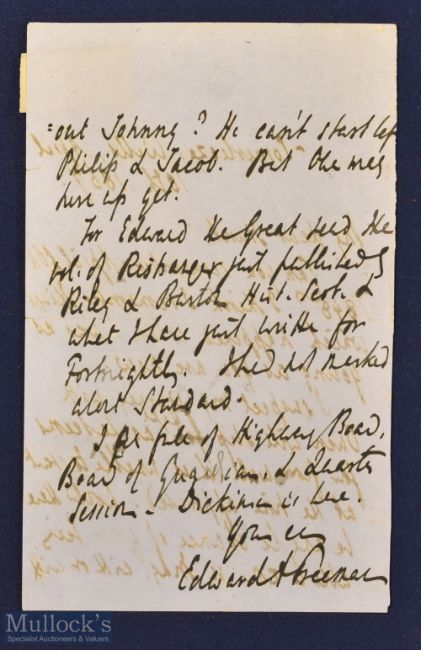 =out Johnny? He can't start bef
Philip & Jacob. But the may
turn up yet.
For Edward the Great read the
vol. of Rishanger just published by
Riley & Burton Hist. Scot. &
what I have just written for
Fortnightly. I had not marked
about Standard.
I am full of Highway Board,
Board of Guardians, & Quarter
Session. Dickinson is here.
Yours ever
Edward A Freeman
Mullock's
Specialist Auctioneers & Valuers